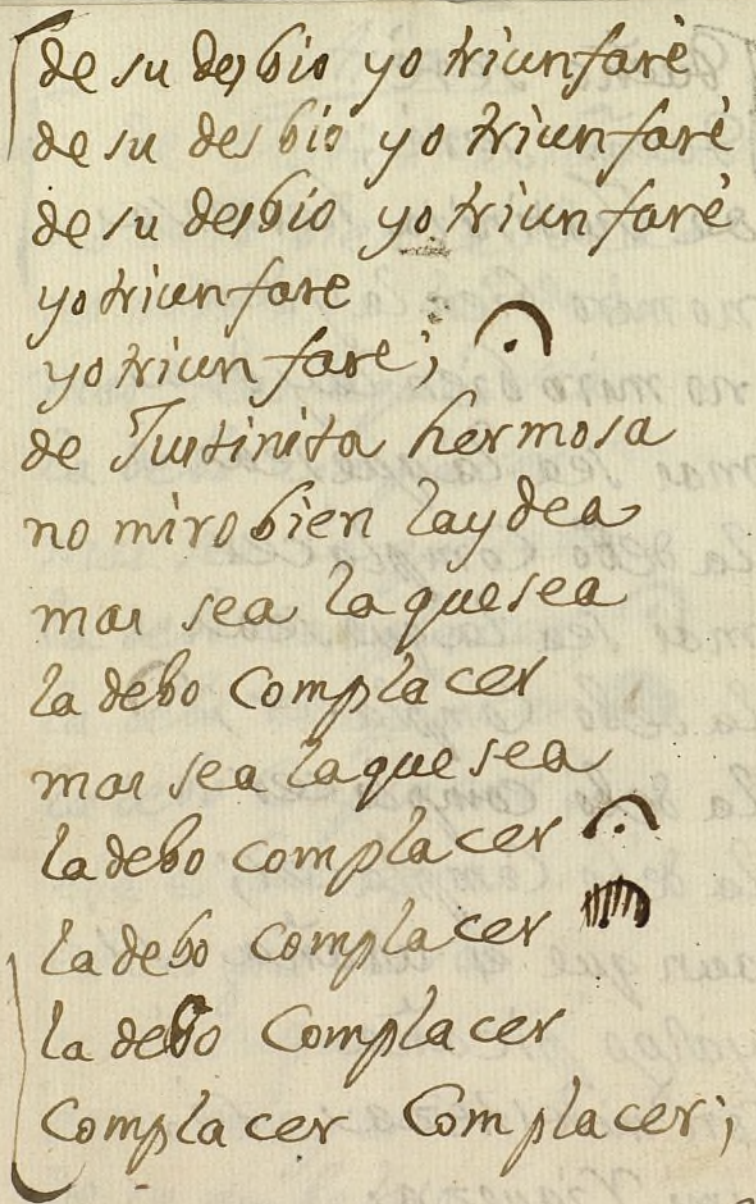 de su desbio yo triunfarè
de su desbio yo triunfarè
de su desbio yo triunfarè
yo triunfare
yo triunfare;
de Justinita hermosa
no miro bien la ydea
mas sea la que sea
la debo complacer
mas sea la que sea
la debo complacer
la debo complacer
la debo complacer
complacer complacer;